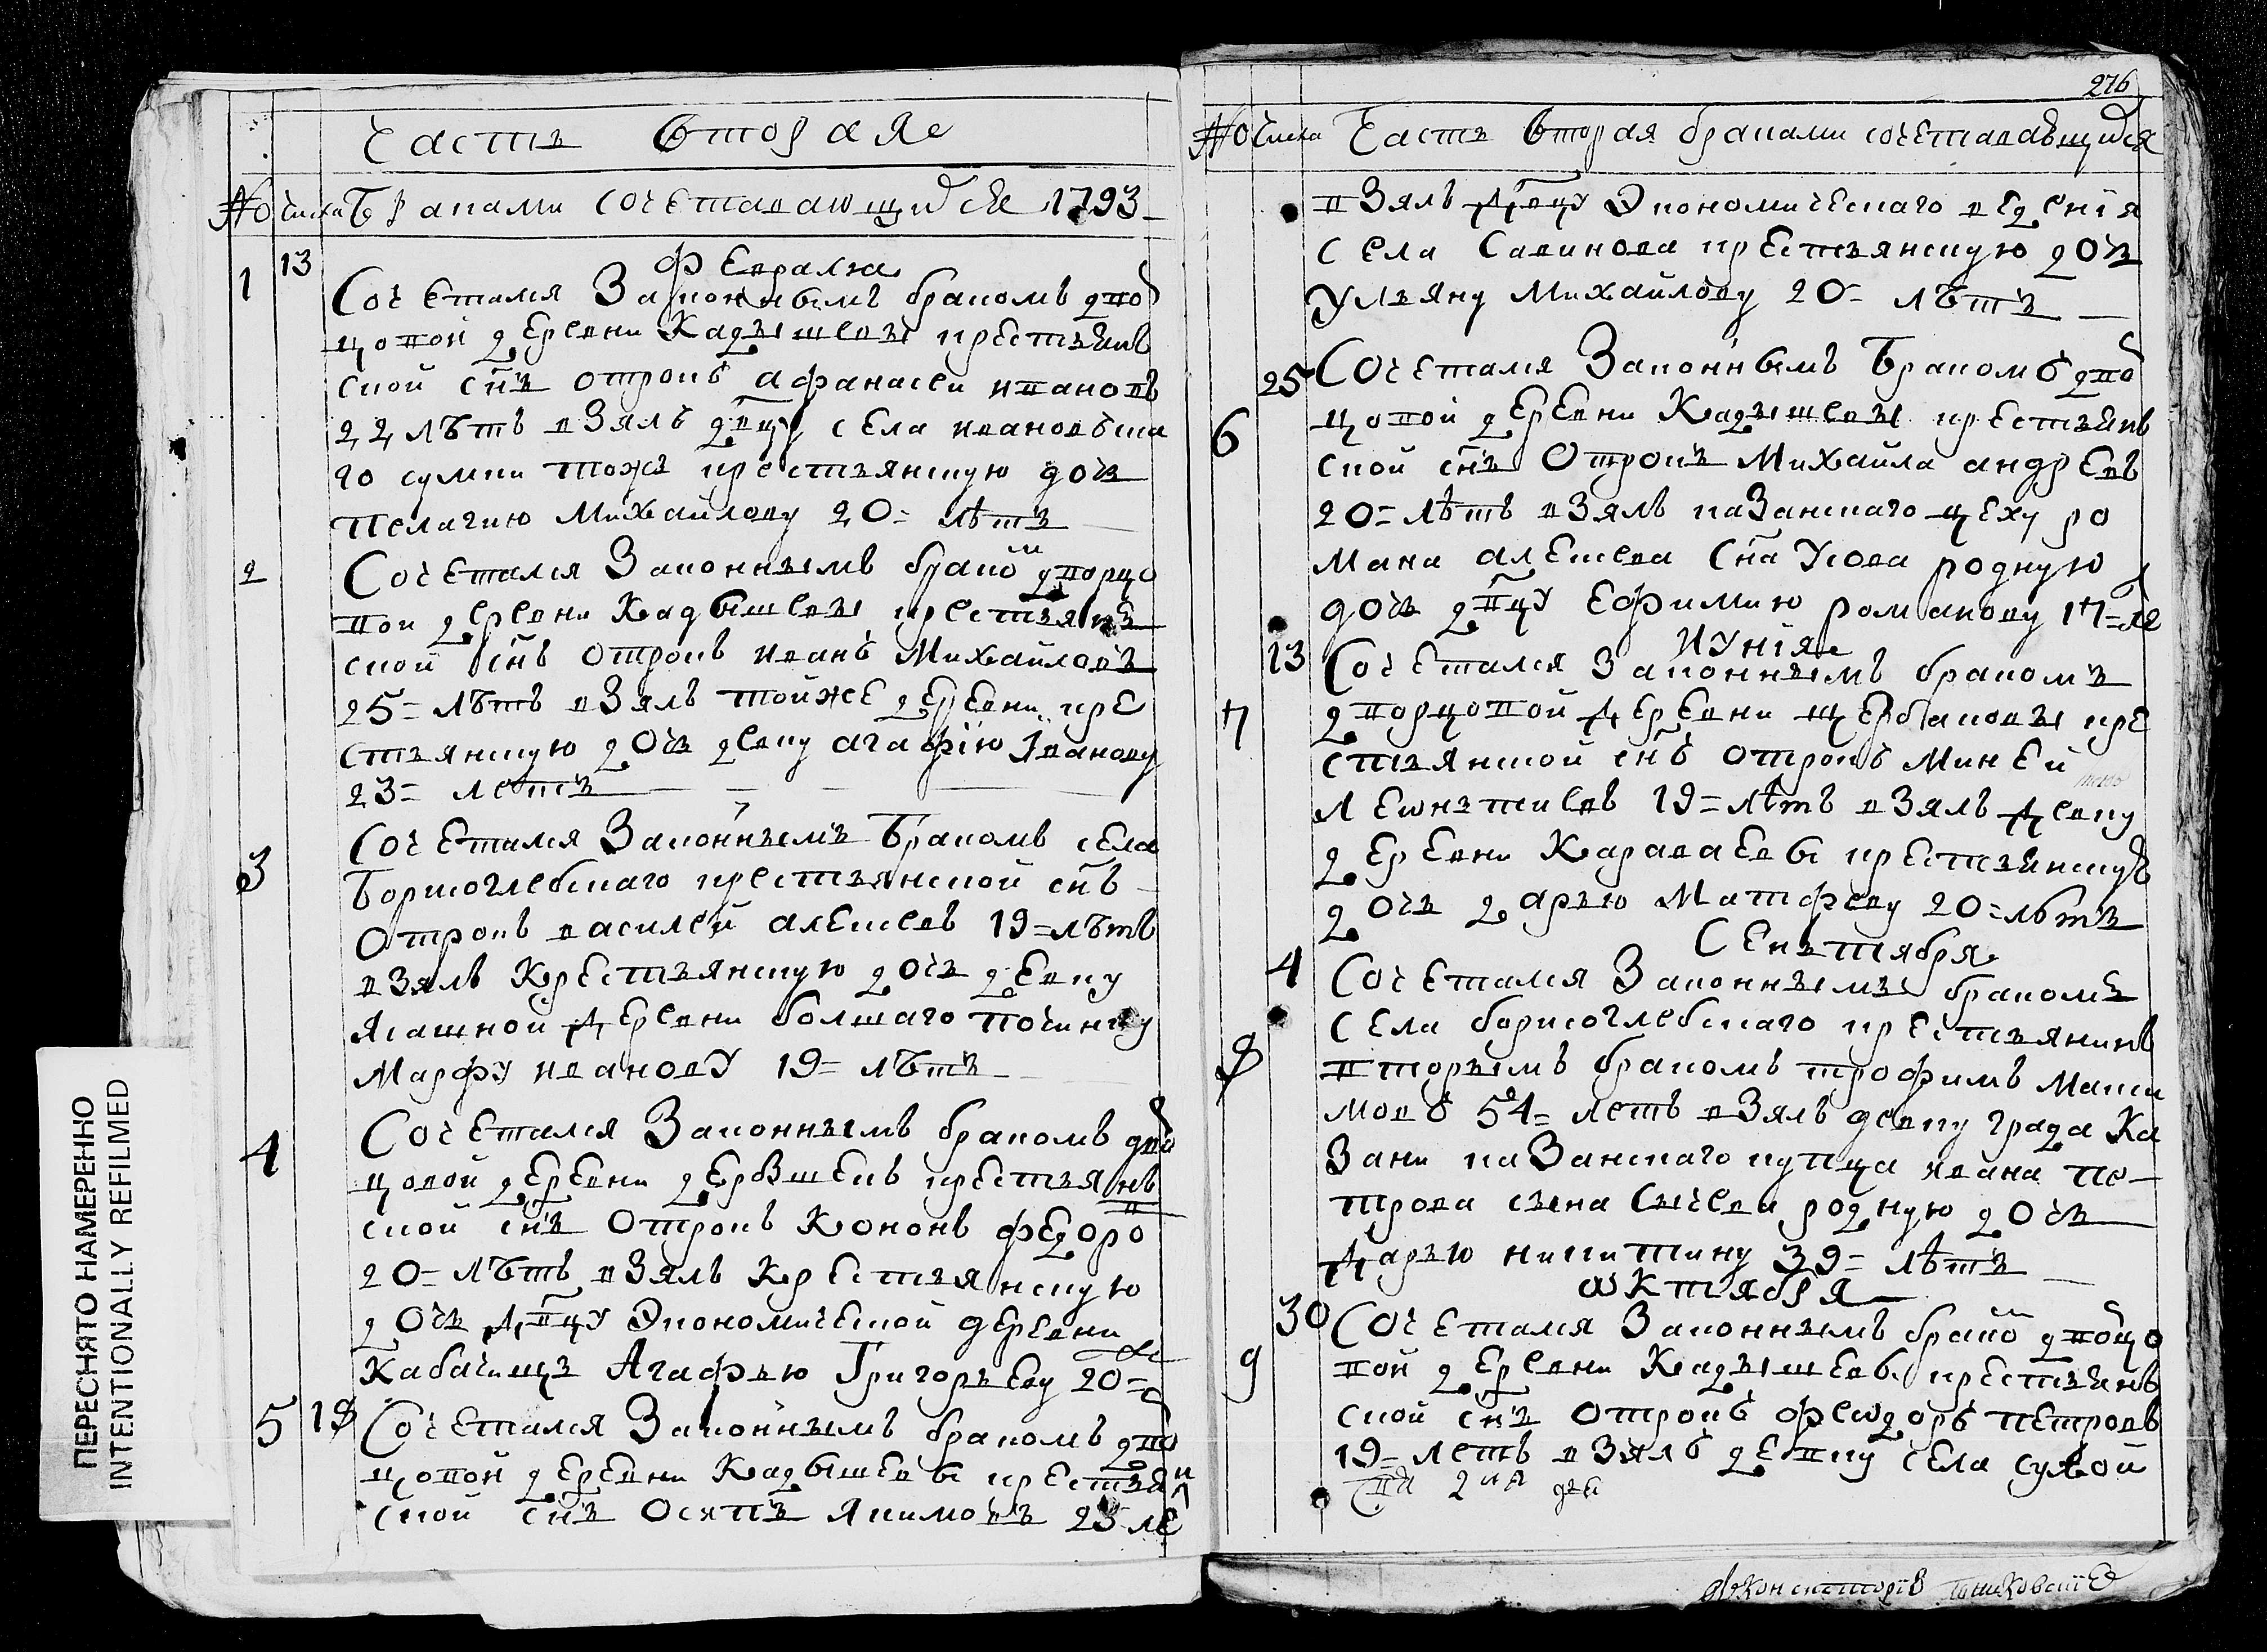 Часть вторая
№ числа Браками сочетавающийся 1793
Февраля
1 13 Сочетался Законнымъ бракомъ дво
цовой деревни Кадышевы крестьянъ
ской снъ отрокъ афанасеи ивановъ
22 лѣтъ взялъ двцу села ивановъска
го сумки тожъ крестьянскую дочь
пелагию Михаилову 20 = лѣтъ
2 Сочетался Законнымъ брако дворцо
вои деревни Кадышевы крестьянъ
ской снъ отрокъ иванъ Михаиловъ
25 = лѣтъ взялъ тойже деревни кре
стьянскую дочь девку агафію Іванову
23 = летъ
3 Сочетался Законнымъ Бракомъ села
Борисоглебскаго крестьянской снъ
Отрокъ василей алексеевъ 19 = лѣтъ
взялъ Крестьянскую дочь девку
Ясашной деревни болшаго починку
Марфу иванову 19 = лѣтъ
4 Сочетался Законнымъ бракомъ дво
цовой деревни дербышекъ крестьянъ
ской снъ отрокъ Кононъ федоро
20 = лѣтъ взялъ Крестьянскую
дочь двцу Экономической деревни
Кабачищъ Агафью Григорьеву 20 =
5 18 Сочетался Законнымъ бракомъ дво
цовой деревни Кадышевы крестьян
ской снъ Осипъ якимовъ 25 ле
276
№ числа Часть вторая браками сочетавающийся
взялъ двцу Экономическаго ведения
села Савинова крестьянскую дочь
Ульяну Михаилову 20 = лѣтъ
25 Сочетался Законнымъ Бракомъ дво
6 цовой деревни Кадышевы крестьянъ
ской снъ Отрокъ Михаила андреевъ
20 = лѣтъ взялъ казанскаго цеху ро
мана алексеева сна Усова родную
дочь двцу Ефимию романову 17 = ле
ИУнія
13 Сочетался Законнымъ бракомъ
7 дворцовой деревни щербаковы кре
стьянской снъ отрокъ Миней
Леонътиевъ 19 = лѣтъ взялъ девку
деревни Караваевы крестьянскую
дочь дарью Матфееву 20 = лѣтъ
Сенътября
4 Сочетался Законнымъ бракомъ
села борисоглебскаго крестьянинъ
8 вторымъ бракомъ трофимъ Макси
мовъ 54 = летъ взялъ девку града Ка
зани казанскаго купца ивана пе
трова сына Сычева родную дочь
дарью никитину 39 = лѣтъ
октября
30 Сочетался Законнымъ брако двоцо
9 вой деревни Кадышевы крестьянъ
ской снъ отрокъ феодоръ петровъ
19 = летъ взялъ девку села сухой
ПЕРЕСНЯТО НАМЕРЕННО
INTENTIONALLY REFILMED